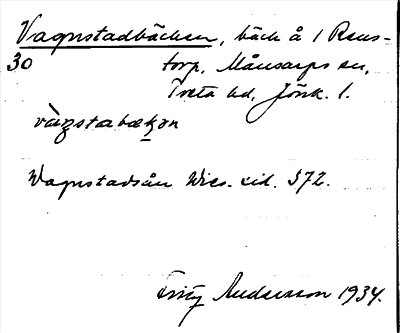 Vagnstadbäcken, bäck å 1 Rans-
30 torp, Månsarps sn,
Tveta hd, Jönk. l.
vàgstabækən
Wagnstadsån Wies. sid. 372.
Fritz Andersson 1934.